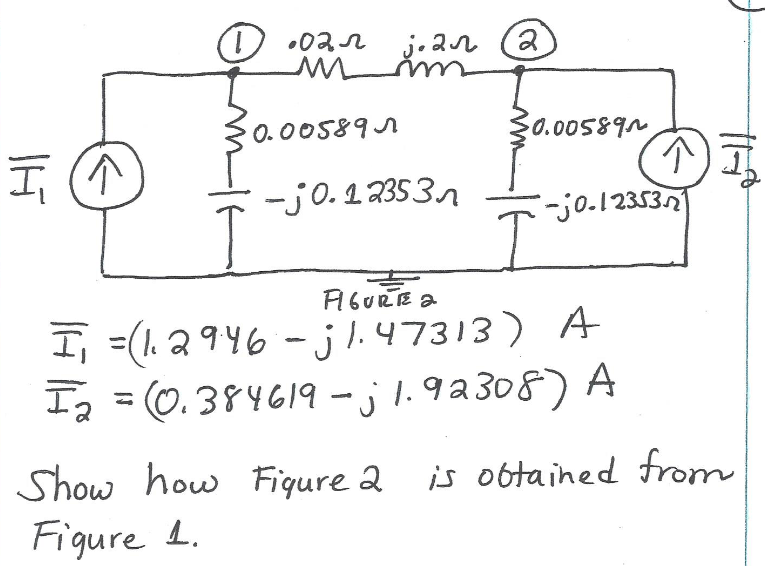 ① .02Ω j.2Ω ②
0.00589Ω 0.00589Ω
I̅₁ I̅₂
-j0.12353Ω -j0.12353Ω
FIGURE 2
I̅₁ = (1.2946 - j1.47313) A
I̅₂ = (0.384619 - j1.92308) A
Show how Figure 2 is obtained from
Figure 1.